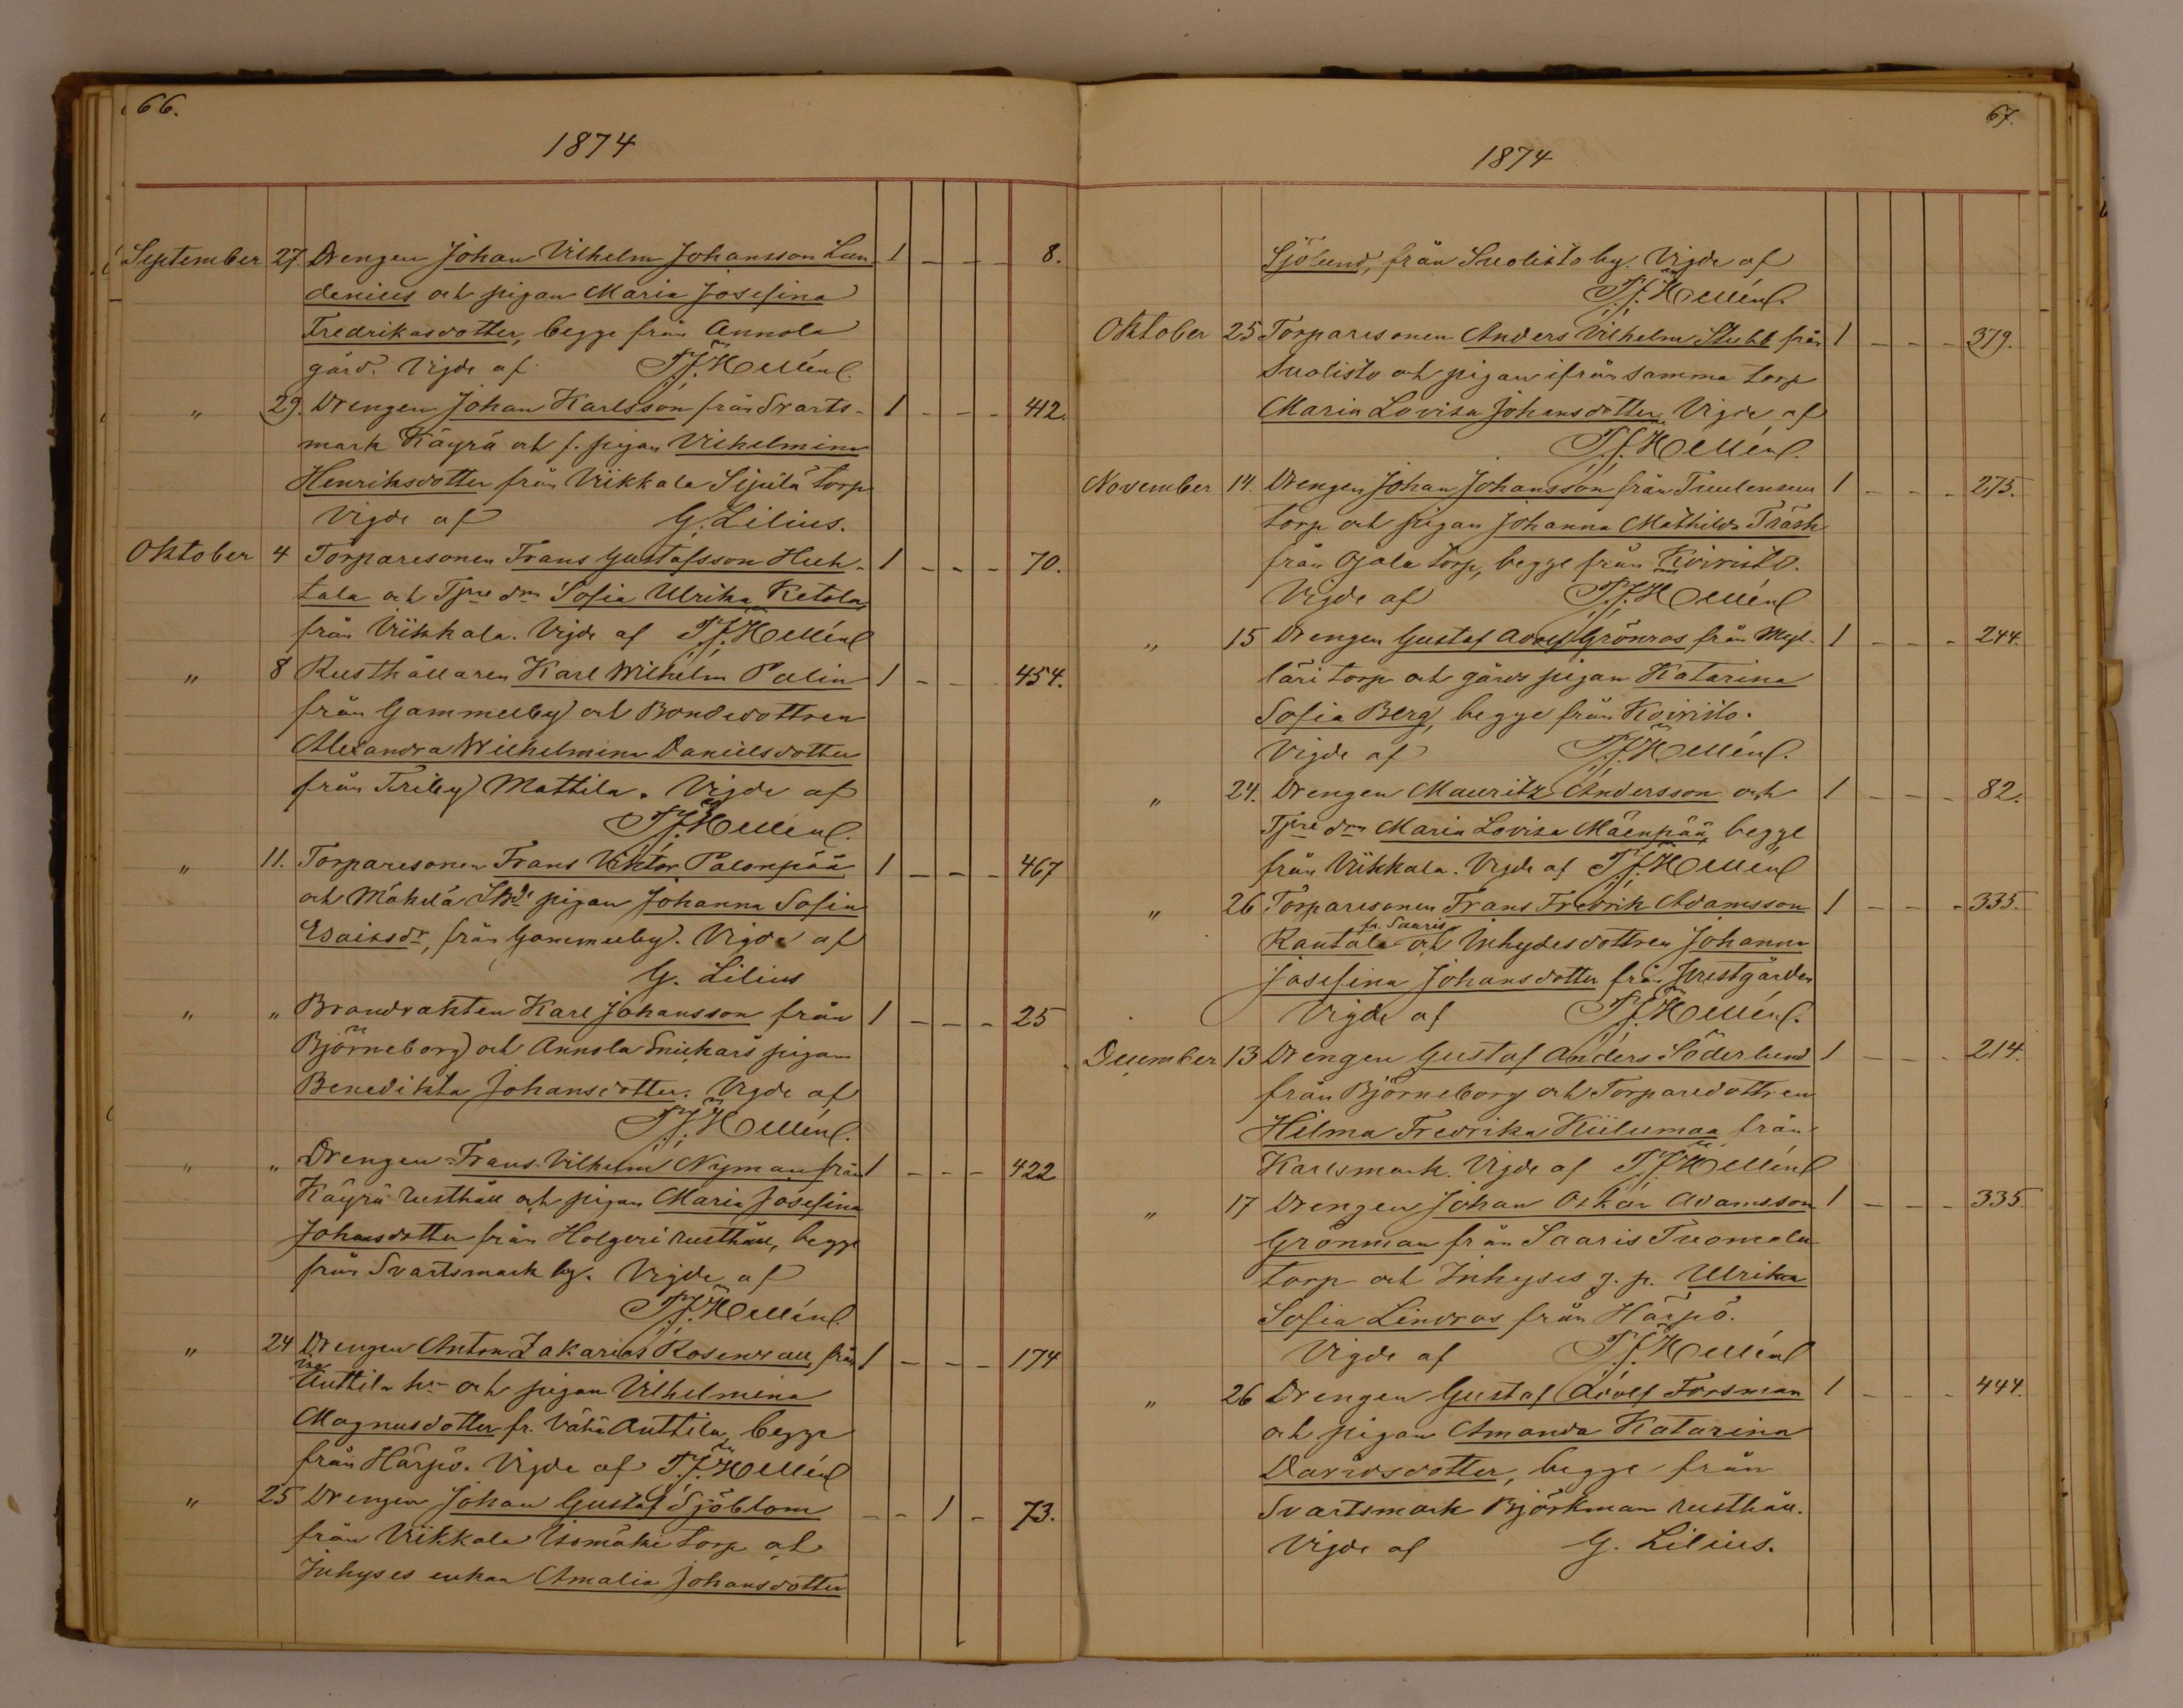 66.
1874
September 27. Drengen Johan Vilhelm Johansson Lun 1 - - - 8.
denius och pigan Maria Josefina
Fredrikasdotter, begge från Annola
gård. Vigde af
" 29. Drengen Johan Karlsson från Svarts- 1 - - - 412.
mark Käyrä och f. pigan Vilhelmina
Henriksdotter från Viikkala Sijuilä torp
Vigde af G. Lilius.
Oktober 4 Torparesonen Frans Gustafsson Huh- 1 - - - 70.
tala och Tjre dra Sofia Ulrika Ketola,
från Viikkala. Vigde af
" 8 Rusthållaren Karl Wilhelm Palin 1 - - 454.
från Gammelby och Bondedottren
Alexandra Wilhelmina Danielsdotter
från Friby Mattila. Vigde af
" 11. Torparesonen Frans Viktor Palonpää 1 - - - 467
och Mäkelä pigan Johanna Sofia
Esaiasdr, från Gammelby. Vigde af
G. Lilius
" " Brandvakten Karl Johansson från 1 - - - 25
Björneborg och Annola Snickars pigan
Benedikta Johansdotter. Vigde af
" " Drengen Frans Vilhelm Nyman från 1 - - - 422
Käyrä rusthåll och pigan Maria Josefina
Johansdotter från Holgeri rusthåll, begge
från Svartsmark by. Vigde af
" 24 Drengen Anton Zakarias Rosendall, från 1 - - - 174
Anttila hn och pigan Vilhelmina
Magnusdotter fr. Vähä Anttila, begge
från Härpö. Vigde af
" 25 Drengen Johan Gustaf Sjöblom - - 1 - 73.
från Viikkala Isomäki torp och
Inhyses enkan Amalia Johansdotter
67.
1874
Sjölund, från Suolisto by. Vigde af
Oktober 25 Torparesonen Anders Vilhelm Stubb från 1 - - - 379.
Suolisto och pigan ifrån samma torp
Maria Lovisa Johansdotter. Vigde af
November 14. Drengen Johan Johansson från Tuulensuu 1 - - - 275.
torp och pigan Johanna Mathilda Träsk
från Ojala torp, begge från Koivisto.
Vigde af
" 15 Drengen Gustaf Adolf Grönroos från Myl- 1 - - - 244.
läri torp och gårds pigan Katarina
Sofia Berg, begge från Koivisto.
Vigde af
" 24. Drengen Mauritz Andersson och 1 - - - 82.
Tjre dra Maria Lovisa Mäenpää, begge
från Viikkala. Vigde af
" 26 Torparesonen Frans Fredrik Adamsson 1 - - - 335.
fr. Saaris
Rantala och Inhysesdottren Johanna
Josefina Johansdotter från Prestgården
Vigde af
December 13 Drengen Gustaf Anders Söderlund 1 - - - 214.
från Björneborg och Torparedottren
Hilma Fredrika Kiilumaa från
Karlsmark. Vigde af
" 17 Drengen Johan Oskar Adamsson 1 - - - 335.
Grönman från Saaris Tuomola
torp och Inhyses g. p. Ulrika
Sofia Lindroos från Härpö.
Vigde af
" 26 Drengen Gustaf Adolf Forsman 1 - - - 444.
och pigan Amanda Katarina
Davidsdotter, begge från
Svartsmark Björkman rusthåll.
Vigde af G. Lilius.